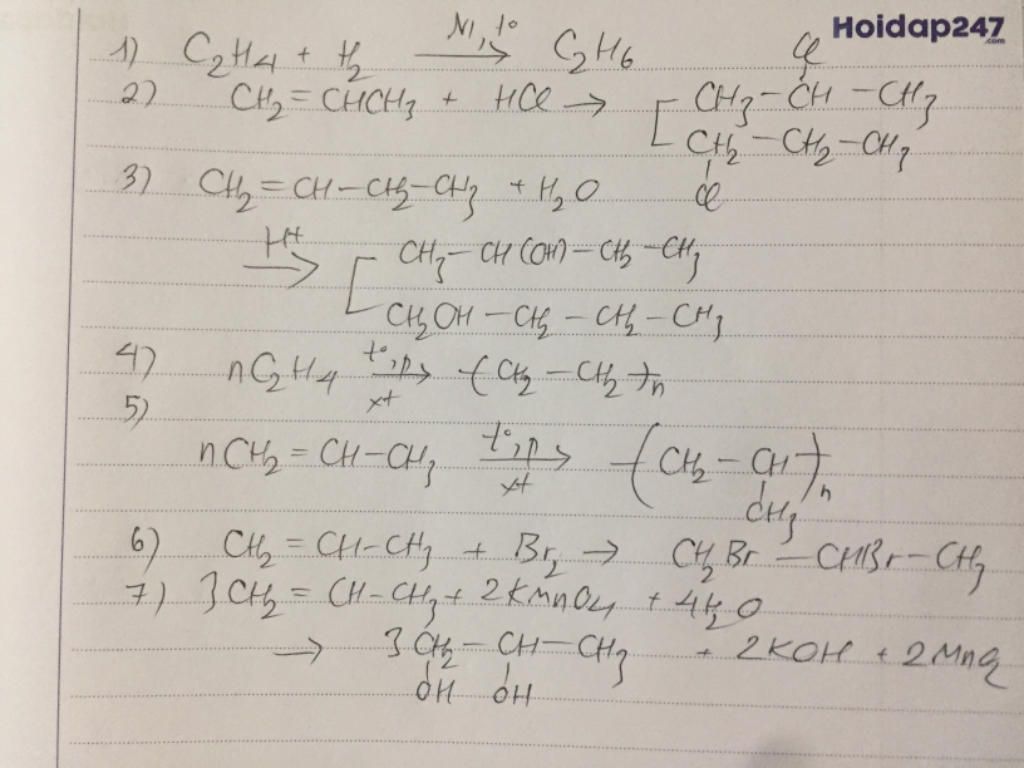 Hoidap247
.com
1) C2H4 + H2 Ni, t° → C2H6
Cl
2) CH2 = CHCH3 + HCl → CH3 - CH - CH3
CH2 - CH2 - CH3
Cl
3) CH2 = CH - CH2 - CH3 + H2O
H+ → CH3 - CH(OH) - CH2 - CH3
CH2OH - CH2 - CH2 - CH3
4) nC2H4 t°, p xt → -(CH2 - CH2)-n
5)
nCH2 = CH - CH3 t°, p xt → -(CH2 - CH)-n
CH3
6) CH2 = CH - CH3 + Br2 → CH2Br - CHBr - CH3
7) 3CH2 = CH - CH3 + 2KMnO4 + 4H2O
→ 3CH2 - CH - CH3 + 2KOH + 2MnO2
OH OH